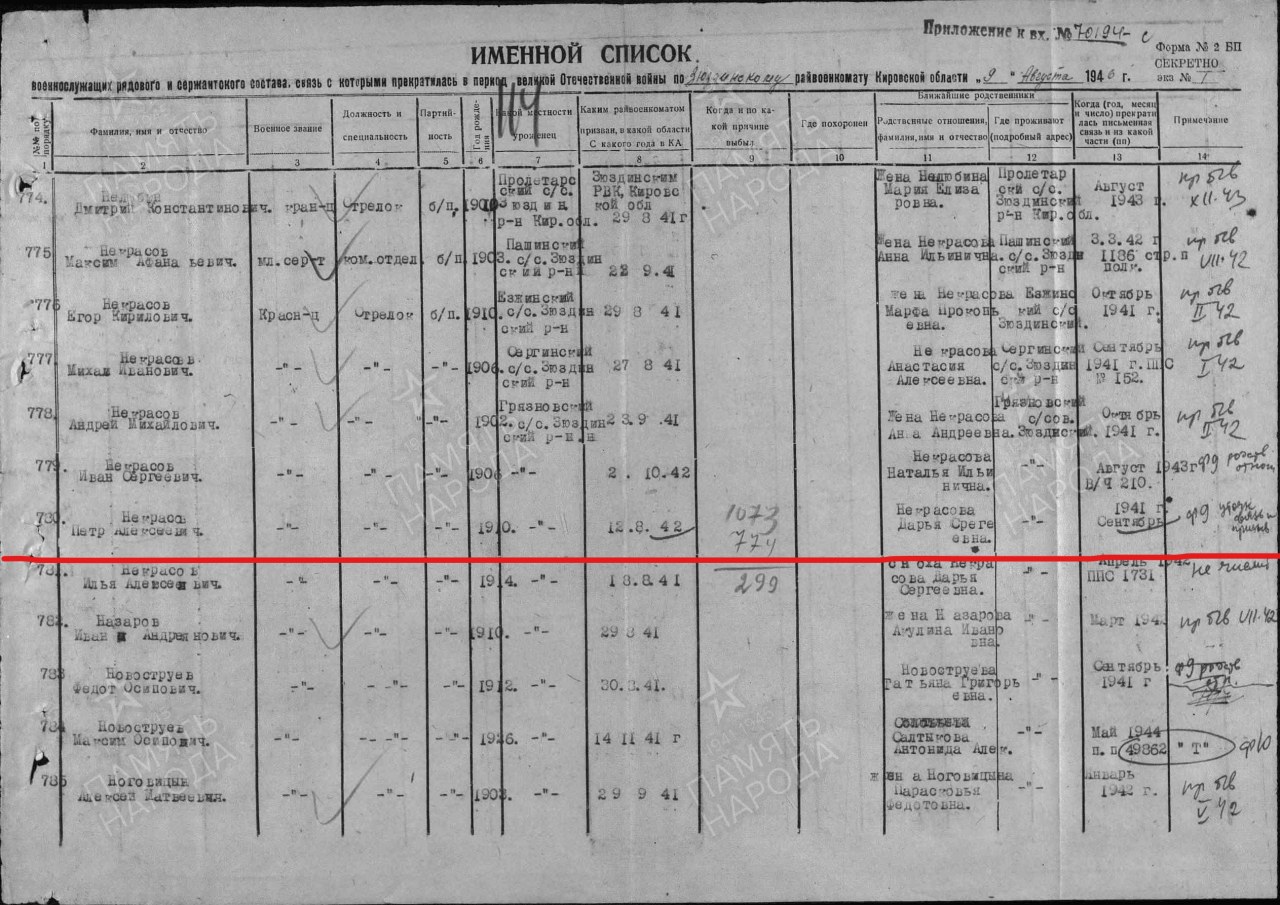 Приложение к вх. № 70194-с
ИМЕННОЙ СПИСОК
Форма № 2 БП
СЕКРЕТНО
экз № 1
военнослужащих рядового и сержантского состава, связь с которыми прекратилась в период великой Отечественной войны по Зюздинскому райвоенкомату Кировской области „9" Августа 1946 г.
114
№№ по порядку
Фамилия, имя и отчество
Военное звание
Должность и специальность
Партийность
Год рождения
Какой местности уроженец
Каким райвоенкоматом призван, в какой области С какого года в КА
Когда и по какой причине выбыл
Где похоронен
Ближайшие родственники
Родственные отношения, фамилия, имя и отчество
Где проживают (подробный адрес)
Когда (год, месяц и число) прекратилась письменная связь и из какой части (пп)
Примечание
1 2 3 4 5 6 7 8 9 10 11 12 13 14
774. Нелюбин Пролетарс Зюздинским Жена Нелюбина Пролетар пр бгв
Дмитрий Константинович. кран-ц стрелок б/п. 1900 ский с/с. РВК, Кировс Мария Елиза ский с/с. Август XII.43
Зюздин. кой обл ровна. Зюздинский 1943 г.
р-н Кир.обл. 29 8 41г р-н Кир.обл.
775 Некрасов Пашинский Жена Некрасова Пашинский 3.3.42 г пр бгв
Максим Афана ьевич. мл.сер-т ком.отдел. б/п. 1903. с/с. Зюздин Анна Ильинична. с/с. Зюздин 1186 стр.п VII.42
ский р-н 22 9.41 ский р-н полк.
776 Некрасов Езжинский Жена Некрасова Езжинс Октябрь пр бгв
Егор Кирилович. Красн-ц Стрелок б/п. 1910. с/с. Зюздин 29 8 41 Марфа Прокопь кий с/с 1941 г. II 42
ский р-н евна. Зюздинский.
777. Некрасов Сергинский Некрасова Сергинский Сентябрь пр бгв
Михаил Иванович. -"- -"- -"- 1906. с/с. Зюздин 27 8 41 Анастасия с/с. Зюздин 1941 г. ППС I 42
ский р-н Алексеевна. ский р-н № 152.
778. Некрасов Грязновский Жена Некрасова Грязновский Октябрь пр бгв
Андрей Михайлович. -"- -"- -"- 1902. с/с. Зюздин 23.9 .41 Анна Андреевна. с/сов. Зюздинский. 1941 г. II 42
ский р-н
779. Некрасов Некрасова
Иван Сергеевич. -"- -"- -"- 1906 -"- 2. 10.42 Наталья Ильи -"- Август 1943г ф9
нична. В/Ч 210.
780. Некрасов 1073 Некрасова 1941 г.
Петр Алексеевич. -"- -"- -"- 1910. -"- 12.8. 42 774 Дарья Сергеевна. -"- Сентябрь ф9
781. Некрасов 299 Сноха Некра Апрель 1942 не числ
Илья Алексеевич. -"- -"- -"- 1914. -"- 18.8.41 сова Дарья -"- ППС 1731
Сергеевна.
782. Назаров жена Назарова
Иван Андреянович. -"- -"- -"- 1910. -"- 29 8 41 Акулина Ивано -"- Март 1942 пр бгв VII.42
вна.
783 Новоструев Новоструева Сентябрь ф9
Федот Осипович. -"- -"- -"- 1912. -"- 30.8.41. Татьяна Григорь -"- 1941 г
евна.
784 Новоструев Салтыкова Май 1944
Максим Осипович. -"- -"- -"- 1926. -"- 14 11 41 г Антонида Алек. -"- п.п 49862 "Т" ф10
785 Ноговицын жена Ноговицына Январь пр бгв
Алексей Матвеевич. -"- -"- -"- 1903. -"- 29 9 41 Парасковья -"- 1942 г. V 42
Федотовна.
ПАМЯТЬ НАРОДА